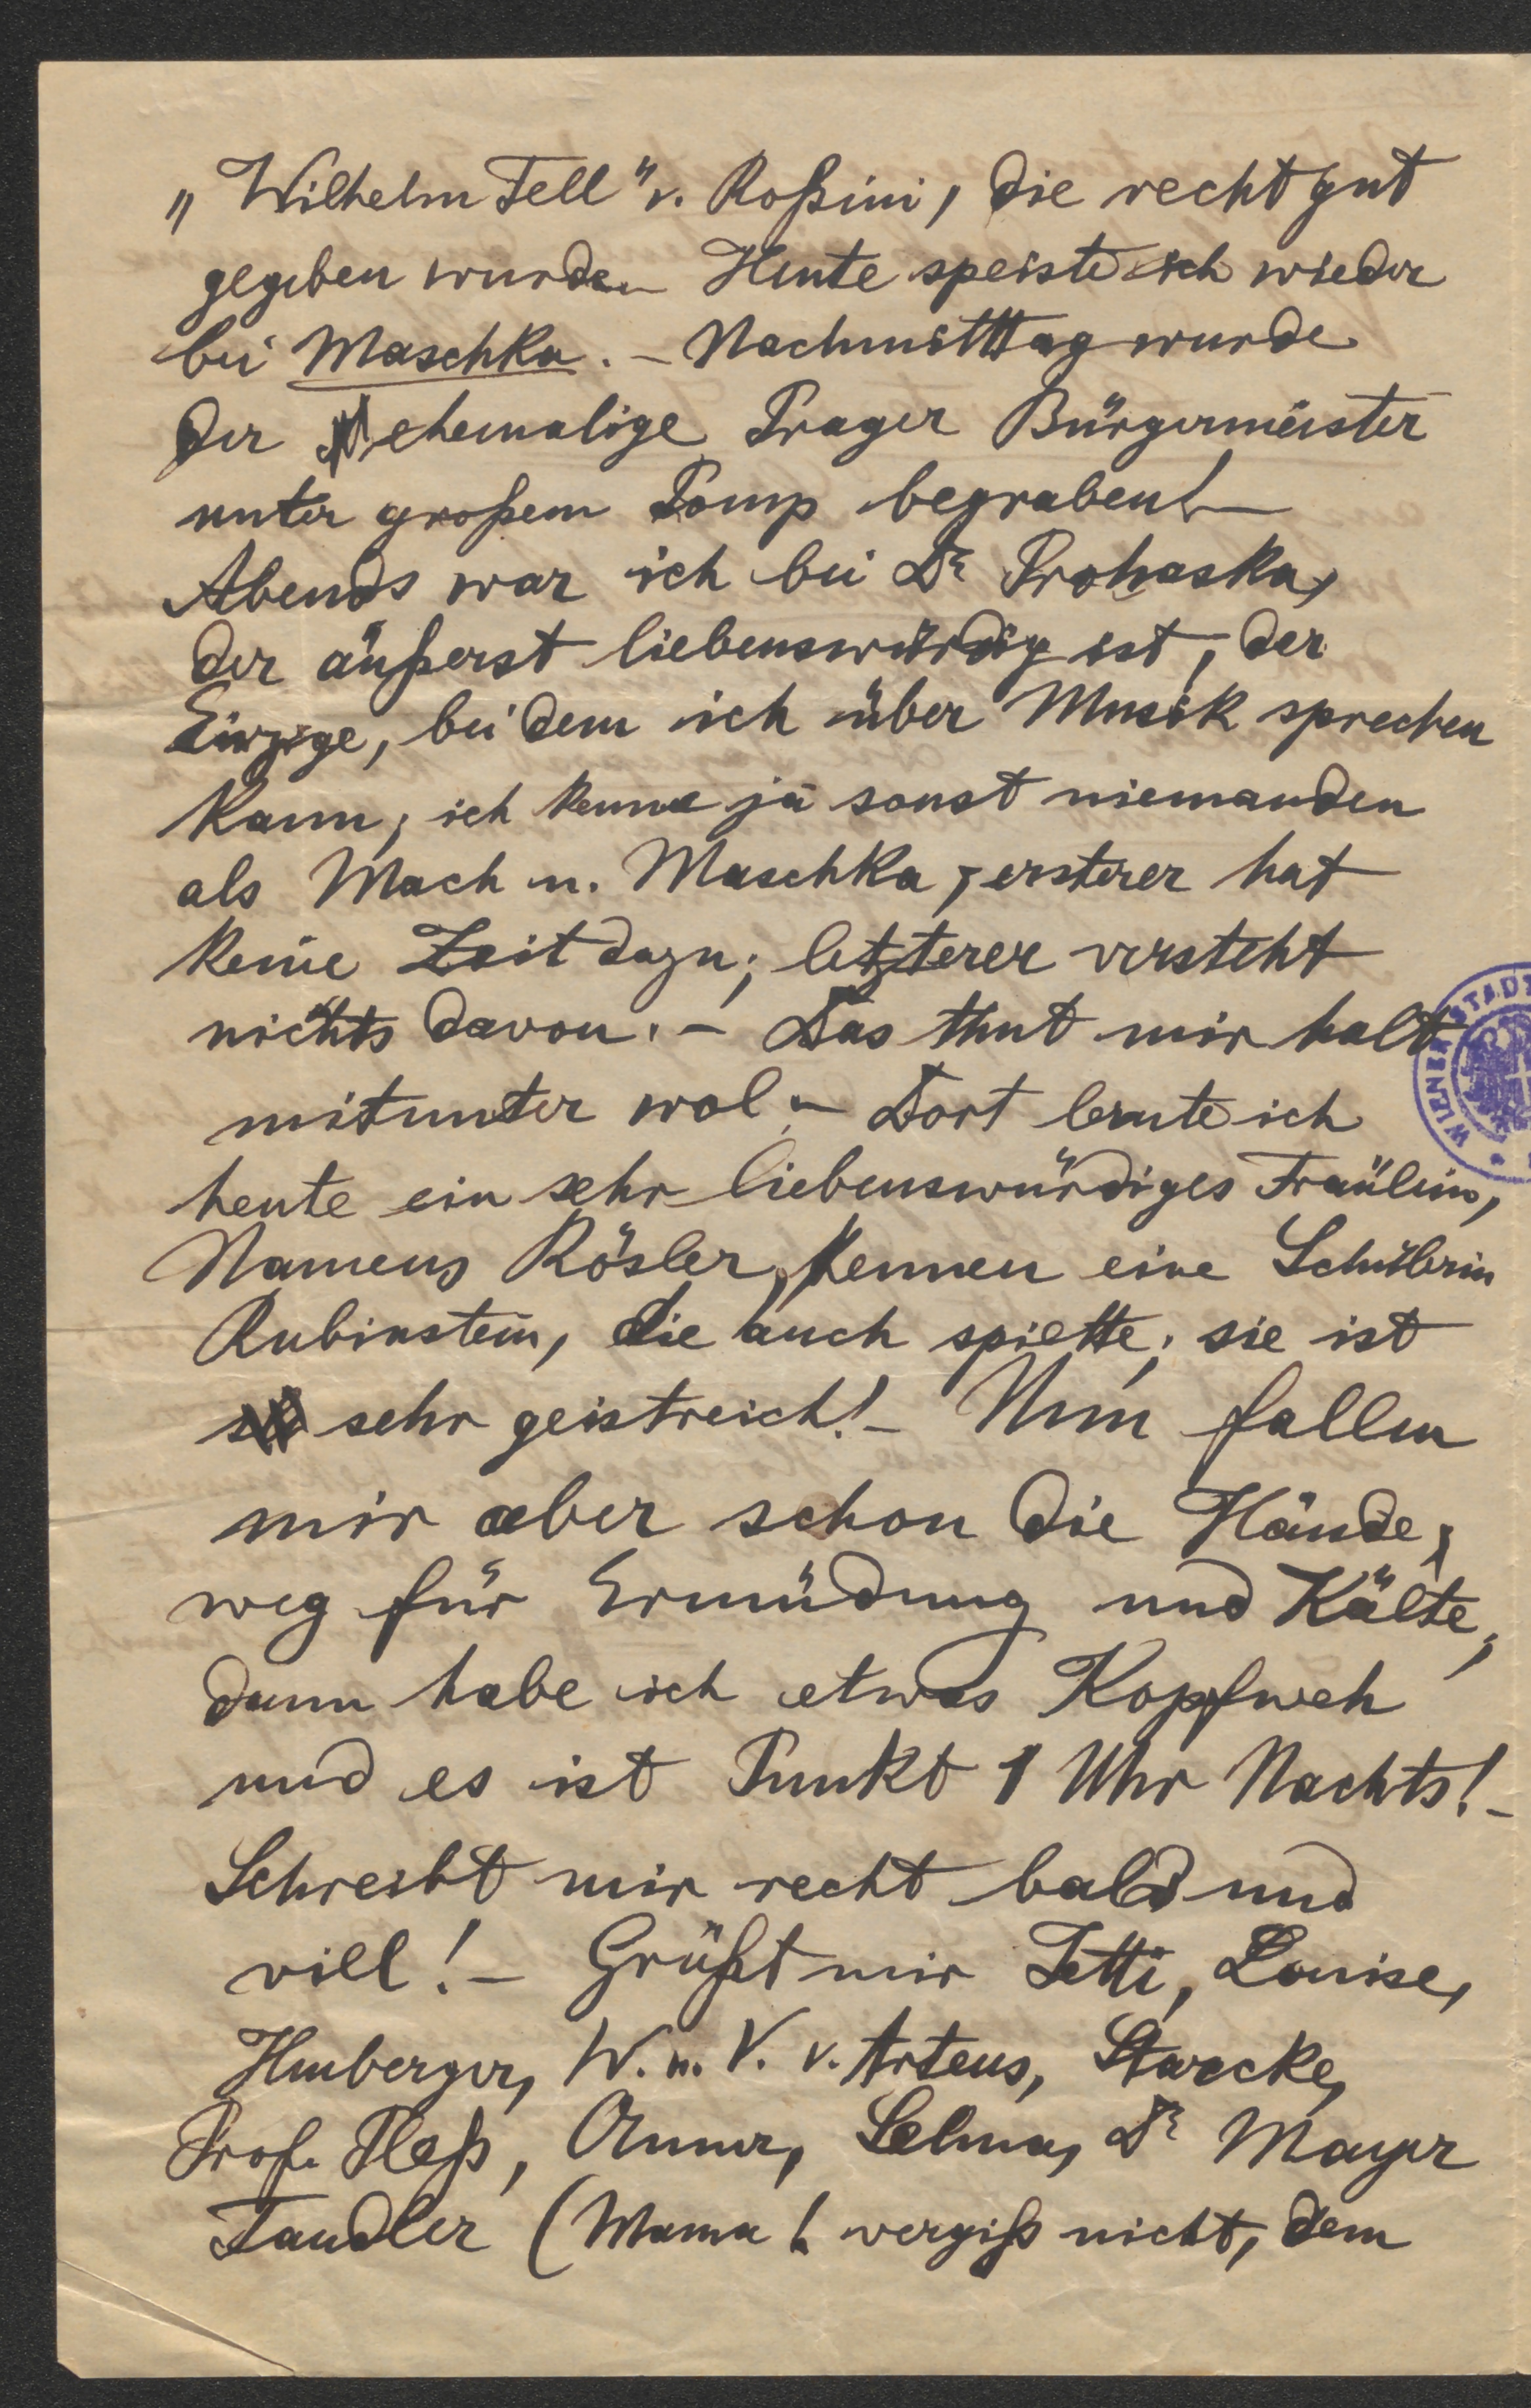 „Wilhelm Tell" v. Roßini, die recht gut
gegeben wurden Heute speiste ich wieder
bei Maschka. – Nachmitttag wurde
der ehemalige Prager Bürgermeister
unter großem Pomp begraben! –
Abends war ich bei Dr Prohaska,
der äußerst liebenswürdig ist, der
Einzige, bei dem ich über Musik sprechen
kann; ich kenne ja sonst niemanden
als Mach u. Maschka, ersterer hat
keine Zeit dazu; letzterer versteht
nichts davon. – Das thut mir halt
mitunter wol. – Dort lernte ich
heute ein sehr liebenswürdiges Fräulein,
Namens Rösler, kennen eine Schülerin
Rubinstein, die auch spielte; sie ist
sehr geistreich! – Nun fallen
mir aber schon die Hände,
weg für Ermüdung und Kälte,
dann habe ich etwas Kopfweh
und es ist Punkt 1 Uhr Nachts! –
Schreibt mir recht bald und
viel! – Grüßt mir Tetti, Louise,
W. u. V. v. Artens, Starcke,
Prof. Pleß, Anna, Selma, Dr Mayer
Tandler (Mama! vergiß nicht, dem
WIENER STADT